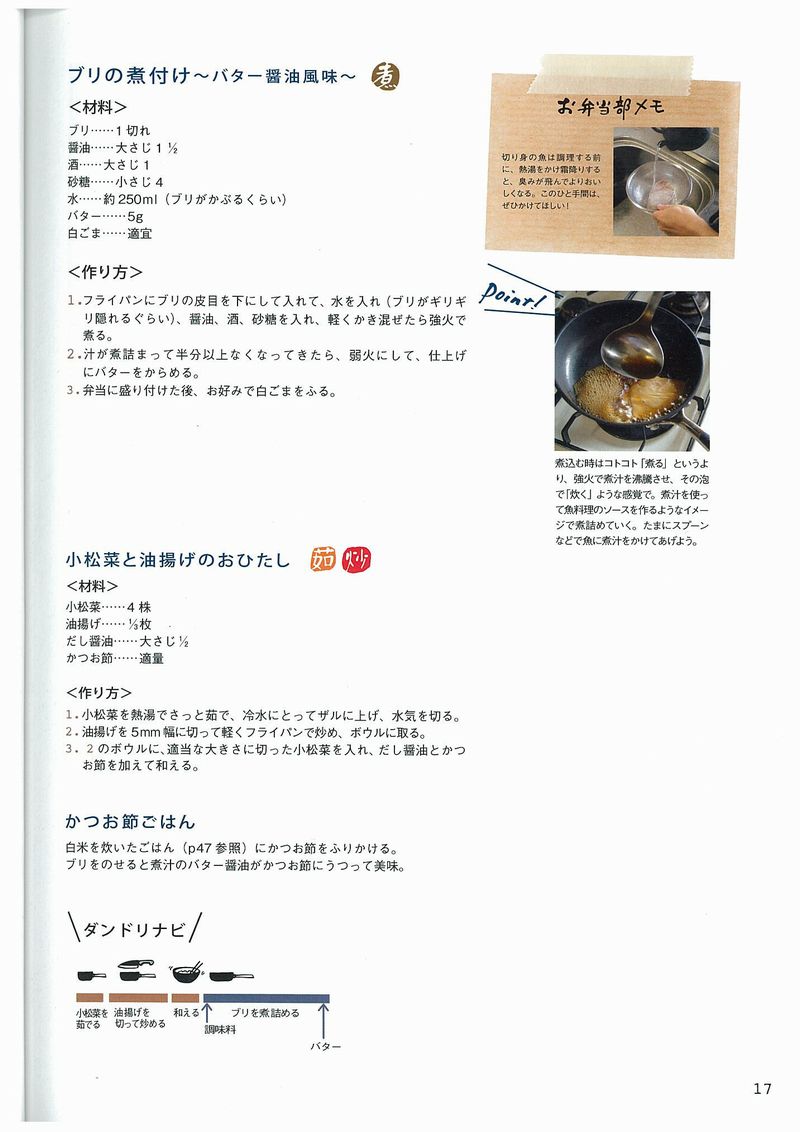 ブリの煮付け～バター醤油風味～ 煮
＜材料＞
ブリ……1 切れ
醤油……大さじ 1 ½
酒……大さじ 1
砂糖……小さじ 4
水……約 250ml（ブリがかぶるくらい）
バター……5g
白ごま……適宜
＜作り方＞
1.フライパンにブリの皮目を下にして入れて、水を入れ（ブリがギリギ
リ隠れるぐらい）、醤油、酒、砂糖を入れ、軽くかき混ぜたら強火で
煮る。
2.汁が煮詰まって半分以上なくなってきたら、弱火にして、仕上げ
にバターをからめる。
3.弁当に盛り付けた後、お好みで白ごまをふる。
お弁当部メモ
切り身の魚は調理する前
に、熱湯をかけ霜降りする
と、臭みが飛んでよりおい
しくなる。このひと手間は、
ぜひかけてほしい！
Point!
煮込む時はコトコト「煮る」というよ
り、強火で煮汁を沸騰させ、その泡
で「炊く」ような感覚で。煮汁を使っ
て魚料理のソースを作るようなイメー
ジで煮詰めていく。たまにスプーン
などで魚に煮汁をかけてあげよう。
小松菜と油揚げのおひたし 茹 炒
＜材料＞
小松菜……4 株
油揚げ……⅓枚
だし醤油……大さじ ½
かつお節……適量
＜作り方＞
1.小松菜を熱湯でさっと茹で、冷水にとってザルに上げ、水気を切る。
2.油揚げを 5mm 幅に切って軽くフライパンで炒め、ボウルに取る。
3. 2 のボウルに、適当な大きさに切った小松菜を入れ、だし醤油とかつ
お節を加えて和える。
かつお節ごはん
白米を炊いたごはん（p47 参照）にかつお節をふりかける。
ブリをのせると煮汁のバター醤油がかつお節にうつって美味。
ダンドリナビ
小松菜を
茹でる
油揚げを
切って炒める
和える
調味料
ブリを煮詰める
バター
17